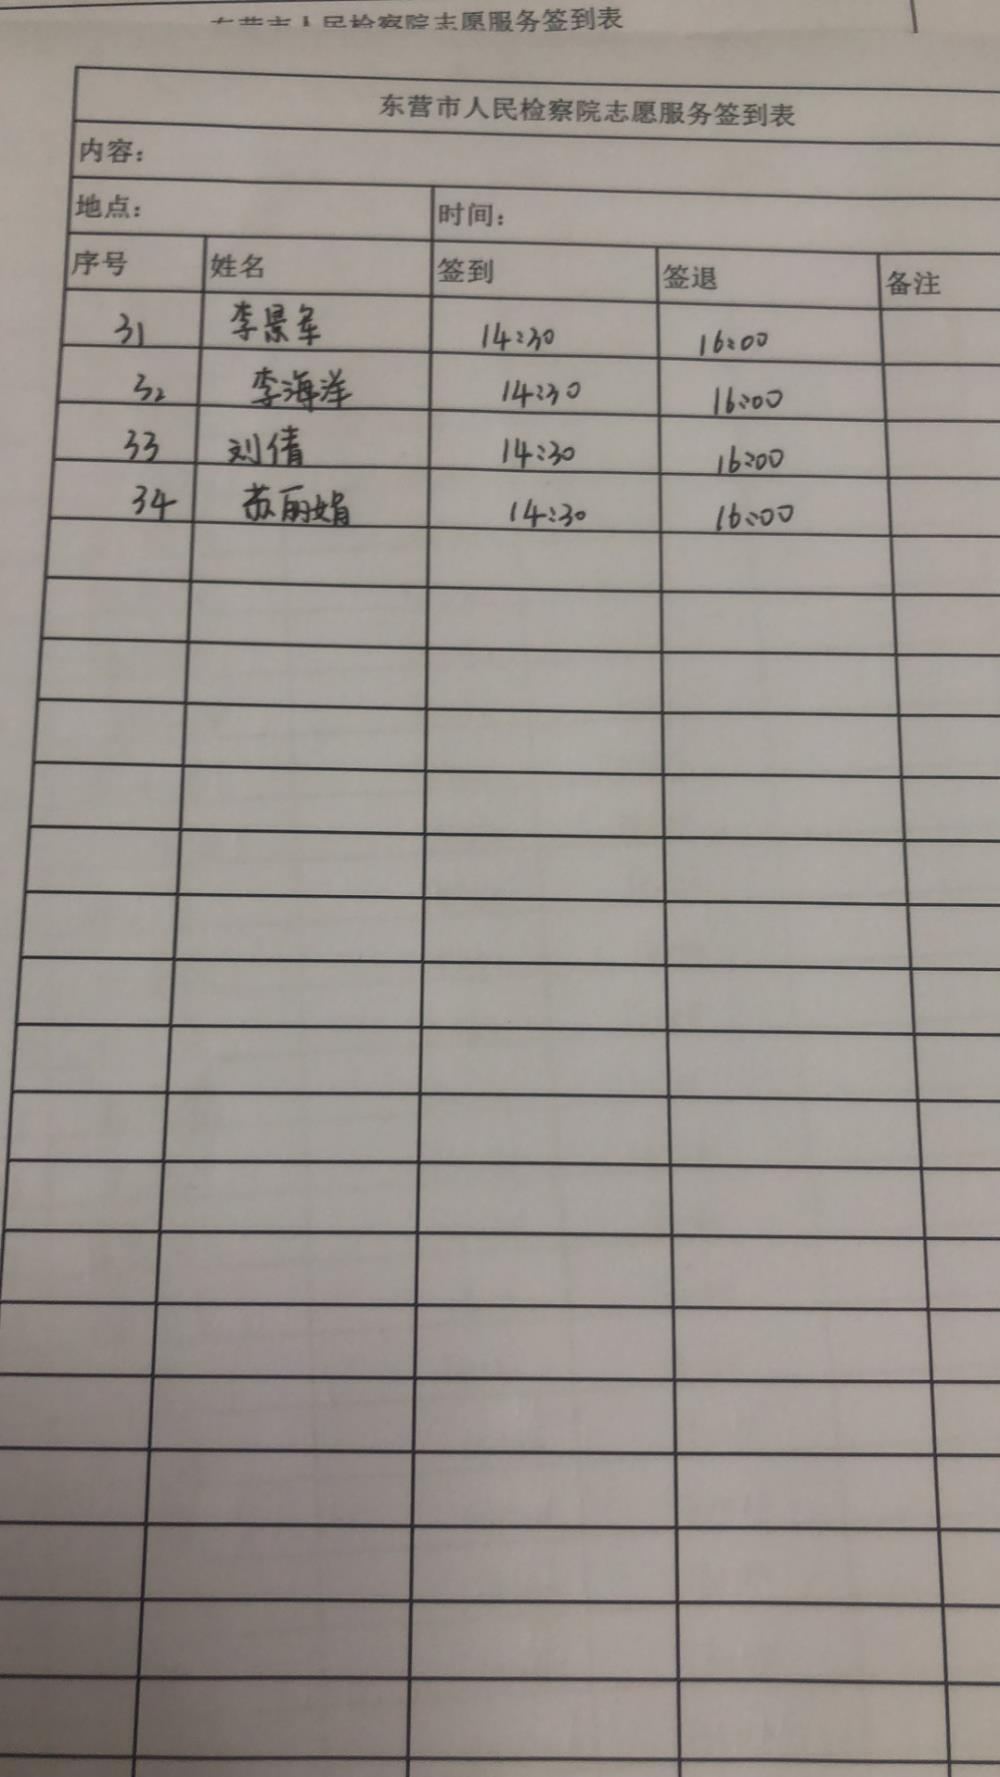 东营市人民检察院志愿服务签到表
东营市人民检察院志愿服务签到表
内容：
地点： 时间：
序号 姓名 签到 签退 备注
31 李景军 14:30 16:00
32 李海洋 14:30 16:00
33 刘倩 14:30 16:00
34 苏丽娟 14:30 16:00